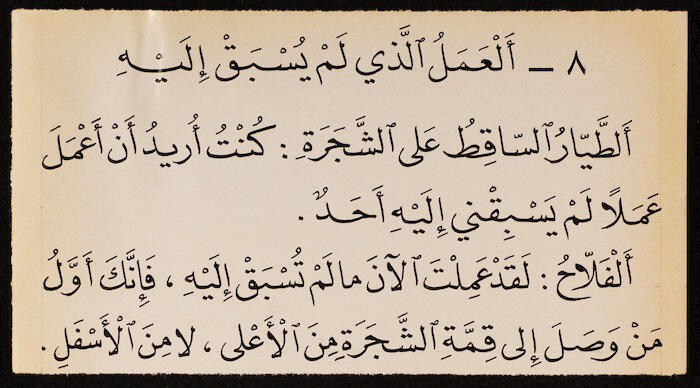 ٨ ـ أَلْعَمَلُ ٱلَّذي لَمْ يُسْبَقْ إِلَيْـهِ
أَلطَّيّارُ ٱلسّاقِطُ عَلى ٱلشَّجَرَةِ : كُنْتُ أُريدُ أَنْ أَعْمَلَ
عَمَلًا لَمْ يَسْبِقْني إِلَيْهِ أَحَدٌ .
أَلْفَلّاحُ : لَقَدْ عَمِلْتَ ٱلآنَ ما لَمْ تُسْبَقْ إِلَيْهِ ، فَإِنَّكَ أَوَّلُ
مَنْ وَصَلَ إِلى قِمَّةِ ٱلشَّجَرَةِ مِنَ ٱلْأَعْلى ، لا مِنَ ٱلْأَسْفَلِ .